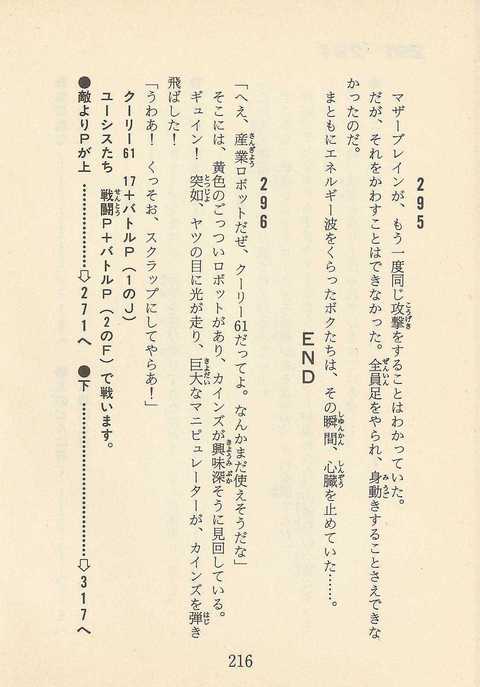 295
マザーブレインが、もう一度同じ攻撃をすることはわかっていた。
だが、それをかわすことはできなかった。全員足をやられ、身動きすることさえできな
かったのだ。
まともにエネルギー波をくらったボクたちは、その瞬間、心臓を止めていた……。
END
296
「へえ、産業ロボットだぜ、クーリー61だってよ。なんかまだ使えそうだな」
そこには、黄色のごっついロボットがあり、カインズが興味深そうに見回している。
ギュイン！　突如、ヤツの目に光が走り、巨大なマニピュレーターが、カインズを弾き
飛ばした！
「うわあ！　くっそお、スクラップにしてやらあ！」
クーリー61　17＋バトルP（1のJ）
ユーシスたち　戦闘P＋バトルP（2のF）で戦います。
●敵よりPが上…………⇨271へ　●下…………⇨317へ
216